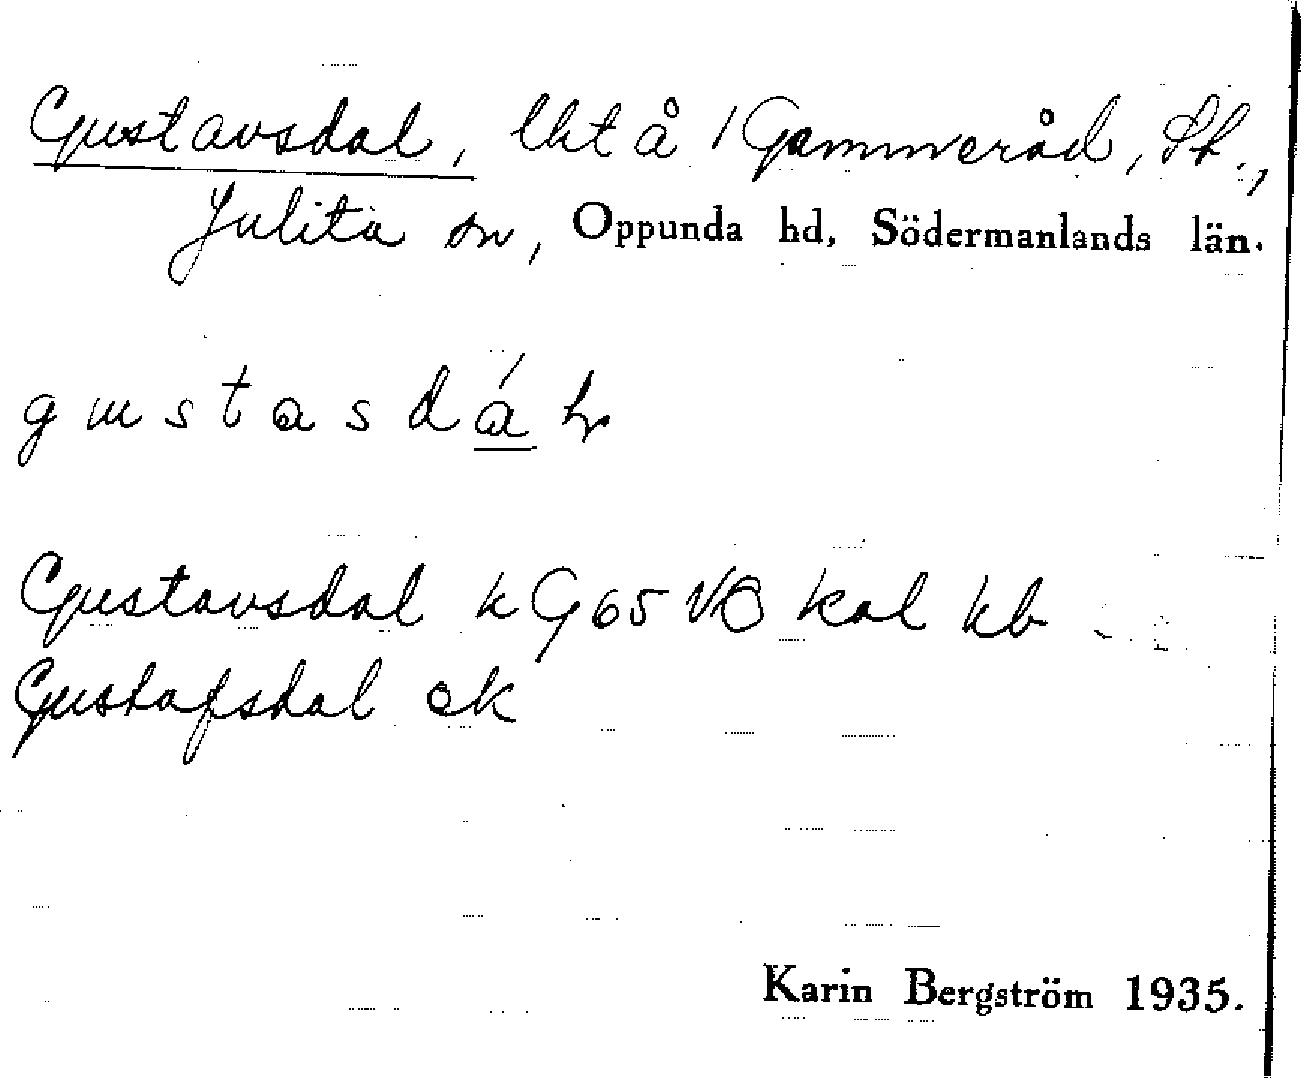 Gustavsdal, lht å 1 Gammeråd, St.,
Julita sn, Oppunda hd, Södermanlands län.
g u s t a s d á l
Gustavsdal k G65 VB kal kb
Gustafsdal ek
Karin Bergström 1935.